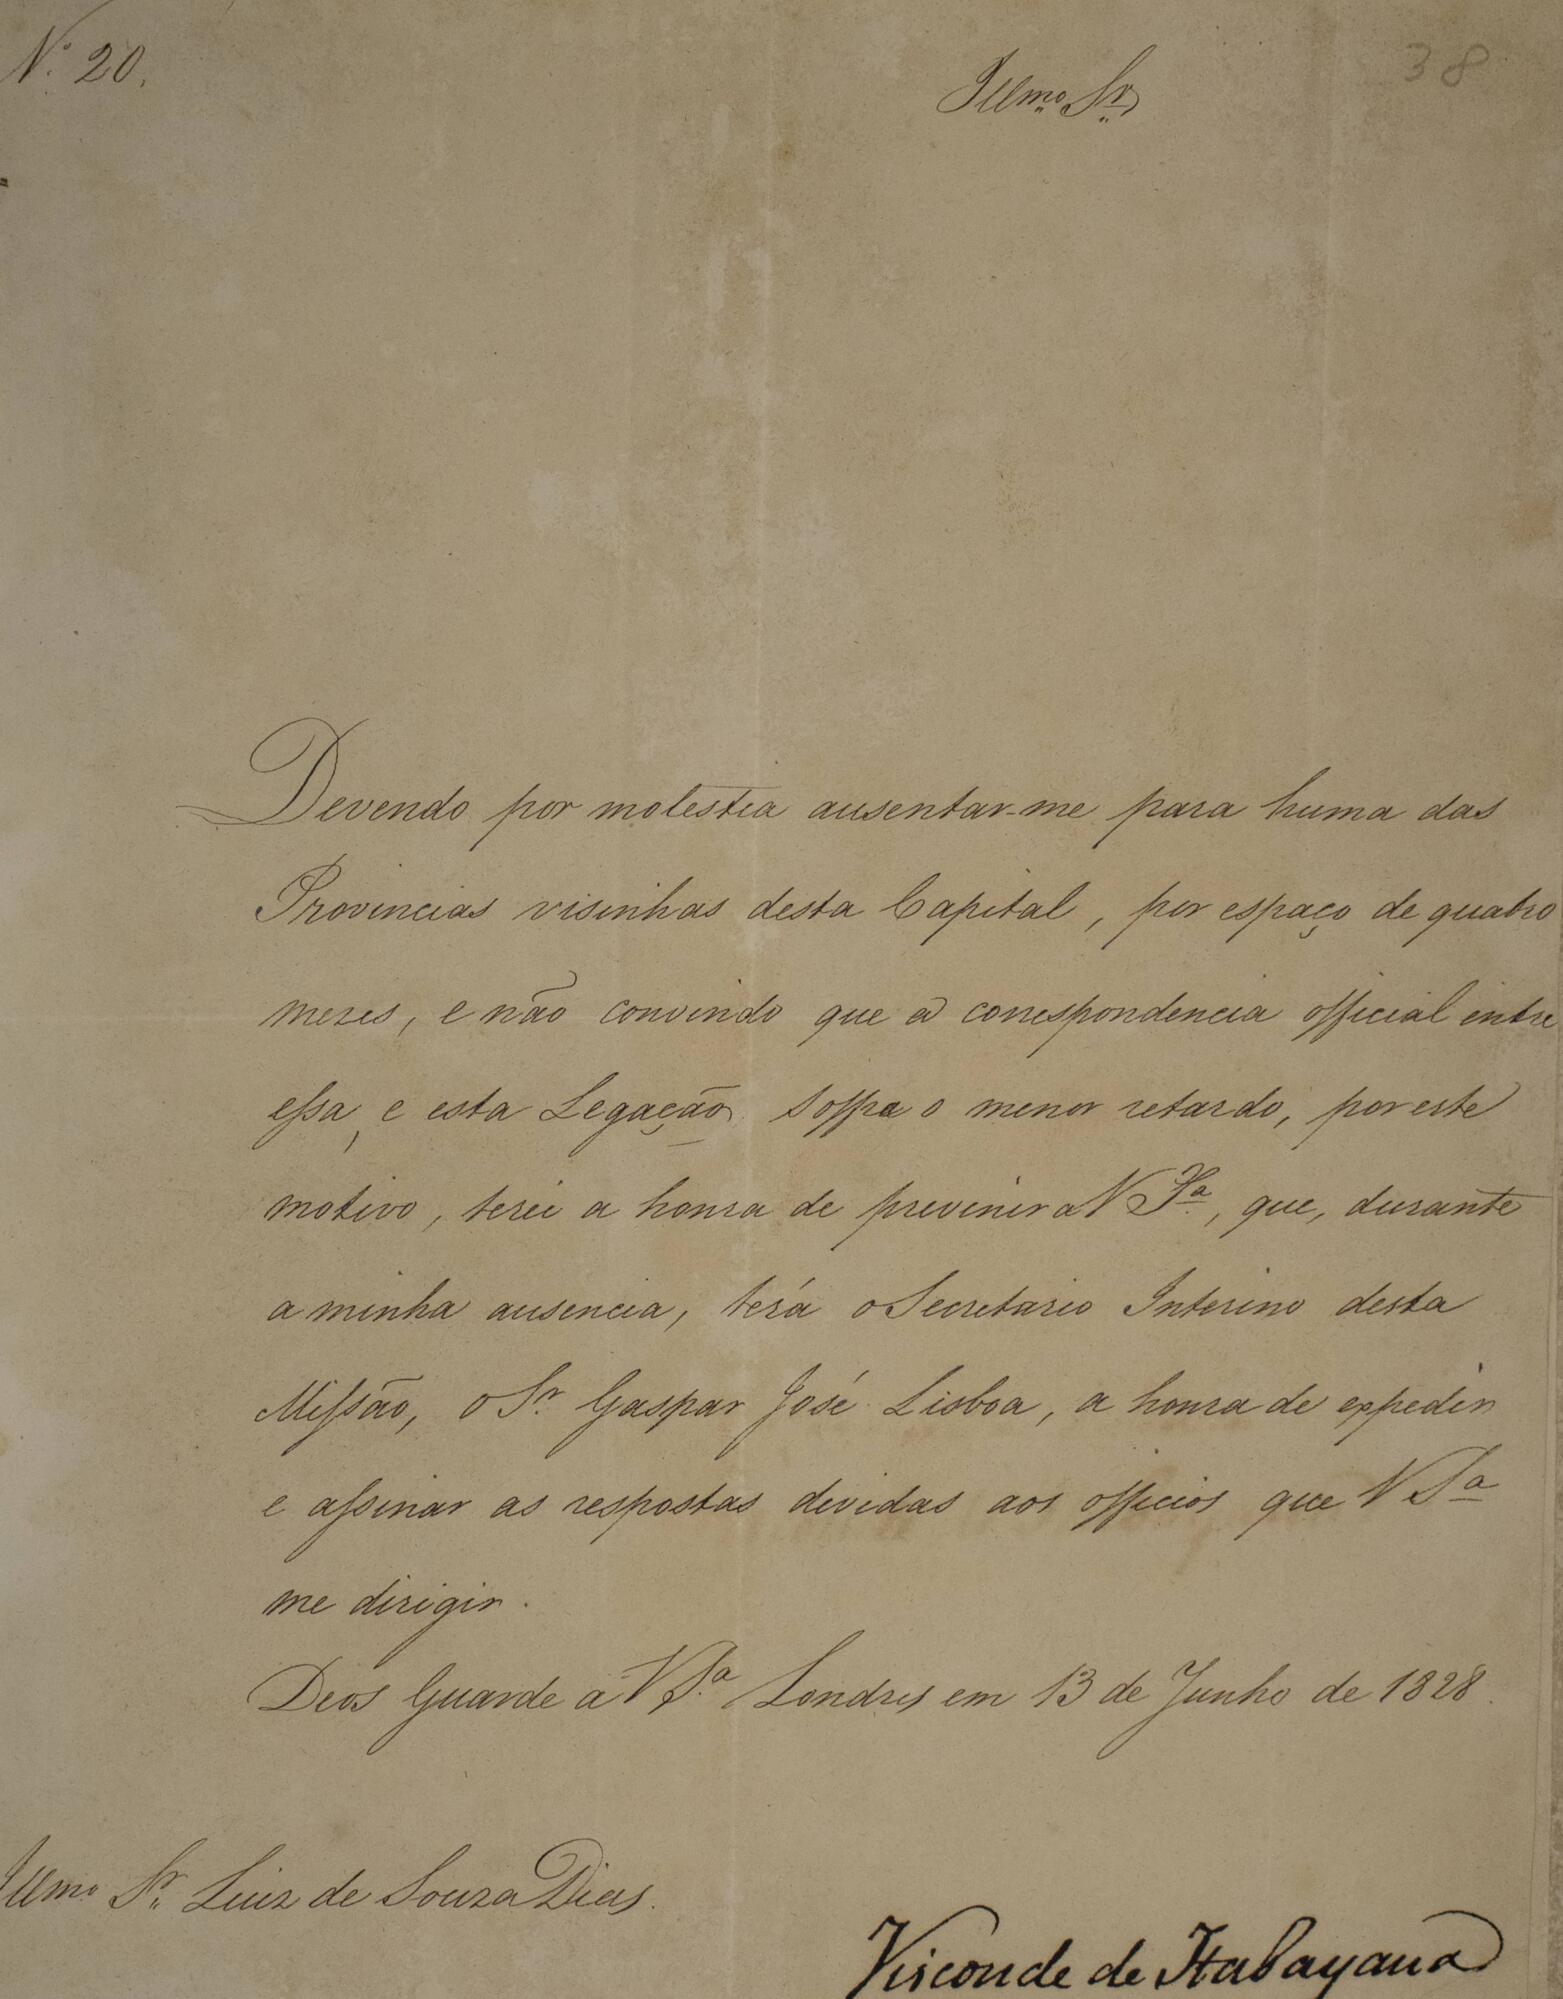 N.º 20.
Illmo. Sr.
38
Devendo por molestia ausentar-me para huma das
Provincias visinhas desta Capital, por espaço de quatro
mezes, e não convindo que a correspondencia official entre
essa, e esta Legação soffra o menor retardo, por este
motivo, terei a honra de prevenir a V Sª, que, durante
a minha ausencia, terá o Secretario Interino desta
Missão, o Sr. Gaspar José Lisboa, a honra de expedir
e assinar as respostas devidas aos officios que V Sª
me dirigir.
Deos Guarde a V Sª Londres em 13 de Junho de 1828.
Illmo. Sr. Luiz de Souza Dias.
Visconde de Itabayana